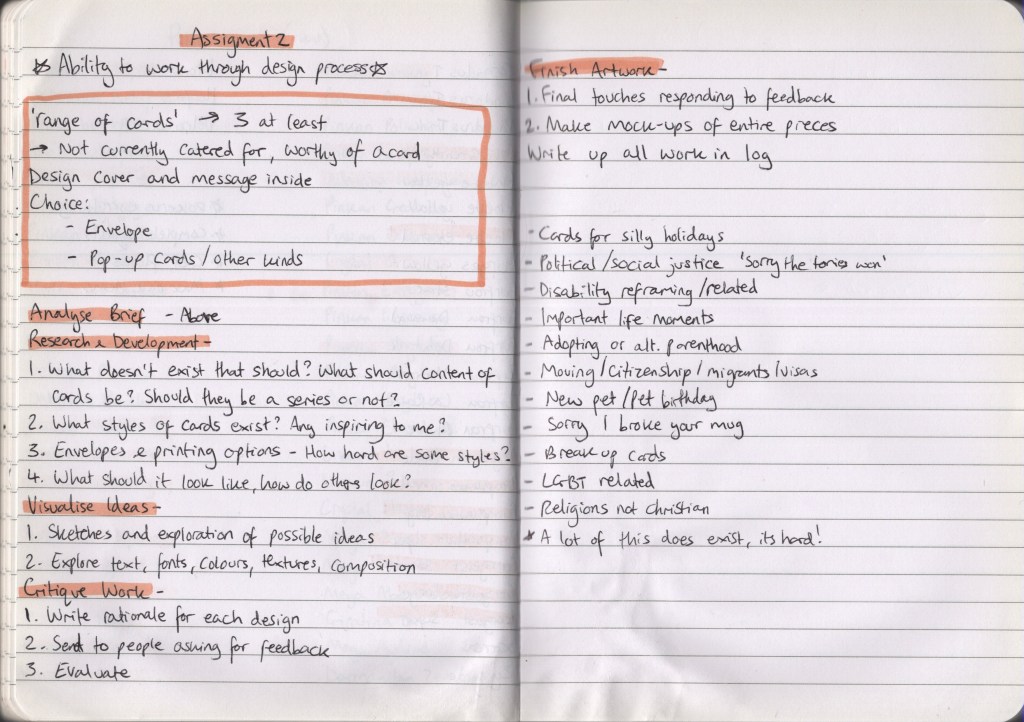 Assigment 2
Ability to work through design process
'range of cards' → 3 at least
→ Not currently catered for, worthy of a card
Design cover and message inside
Choice:
- Envelope
- Pop-up cards / other kinds
Analyse Brief - Above
Research & Development -
1. What doesn't exist that should? What should content of
cards be? Should they be a series or not?
2. What styles of cards exist? Any inspiring to me?
3. Envelopes & printing options - How hard are some styles?
4. What should it look like, how do others look?
Visualise Ideas -
1. Sketches and exploration of possible ideas
2. Explore text, fonts, colours, textures, composition
Critique Work -
1. Write rationale for each design
2. Send to people asking for feedback
3. Evaluate
Finish Artwork -
1. Final touches responding to feedback
2. Make mock-ups of entire pieces
Write up all work in log
- Cards for silly holidays
- Political/social justice 'Sorry the tories won'
- Disability reframing/related
- Important life moments
- Adopting or alt. parenthood
- Moving/Citizenship/migrants/visas
- New pet/Pet birthday
- Sorry I broke your mug
- Break up cards
- LGBT related
- Religions not christian
* A lot of this does exist, its hard!